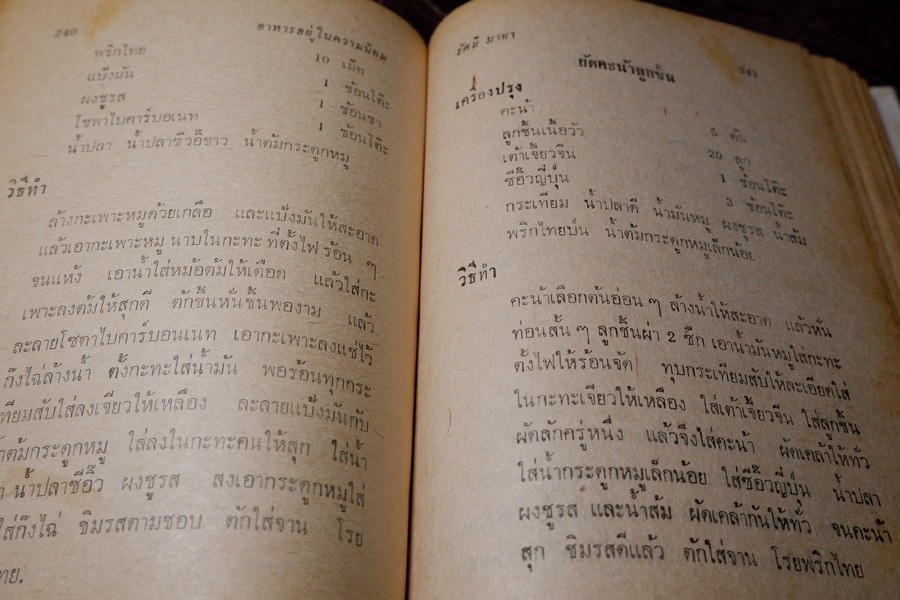 240
อาหารอยู่ในความนิยม
พริกไทย 10 เม็ด
แป้งมัน 1 ช้อนโต๊ะ
ผงชูรส 1 ช้อนชา
โซดาไบคาร์บอเนท 1 ช้อนโต๊ะ
น้ำปลา น้ำปลาซีวอิ๊ขาว น้ำต้มกระดูกหมู
วิธีทำ
ล้างกะเพาะหมูด้วยเกลือ และแป้งมันให้สะอาด
แล้วเอากะเพาะหมู นาบในกะทะ ที่ตั้งไฟ ร้อน ๆ
จนแห้ง เอาน้ำใส่หม้อต้มให้เดือด แล้วใส่กะ
เพาะลงต้มให้สุกดี ตักขึ้นหั่นชิ้นพองาม แล้ว
ละลายโซดาไบคาร์บอนเนท เอากะเพาะลงแช่ไว้
กึ๋งไฉ่ล้างน้ำ ตั้งกะทะใส่น้ำมัน พอร้อนทุกกระ
เทียมสับใส่ลงเจียวให้เหลือง ละลายแป้งมันกับ
ต้มกระดูกหมู ใส่ลงในกะทะคนให้สุก ใส่น้ำ
น้ำปลาซีอิ๊ว ผงชูรส สงเอากระดูกหมูใส่
ใส่กึ๋งไฉ่ ชิมรสตามชอบ ตักใส่จาน โรย
ไทย.
รัศมี มายา
241
ยัดคะน้าลูกชิ้น
เครื่องปรุง
คะน้า 5 ต้น
ลูกชิ้นเนื้อวัว 20 ลูก
เต้าเจี้ยวจีน 1 ช้อนโต๊ะ
ซีอิ๊วญี่ปุ่น 3 ช้อนโต๊ะ
กระเทียม น้ำปลาดี น้ำมันหมู ผงชูรส น้ำส้ม
พริกไทยป่น น้ำต้มกระดูกหมูเล็กน้อย
วิธีทำ
คะน้าเลือกต้นอ่อน ๆ ล้างน้ำให้สะอาด แล้วหั่น
ท่อนสั้น ๆ ลูกชิ้นผ่า 2 ซีก เอาน้ำมันหมูใส่กะทะ
ตั้งไฟให้ร้อนจัด ทุบกระเทียมสับให้ละเอียดใส่
ในกะทะเจียวให้เหลือง ใส่เต้าเจี้ยวจีน ใส่ลูกชิ้น
ผัดสักครู่หนึ่ง แล้วจึงใส่คะน้า ผัดเคล้าให้ทั่ว
ใส่น้ำกระดูกหมูเล็กน้อย ใส่ซีอิ๊วญี่ปุ่น น้ำปลา
ผงชูรส และน้ำส้ม ผัดเคล้ากันให้ทั่ว จนคะน้า
สุก ชิมรสดีแล้ว ตักใส่จาน โรยพริกไทย